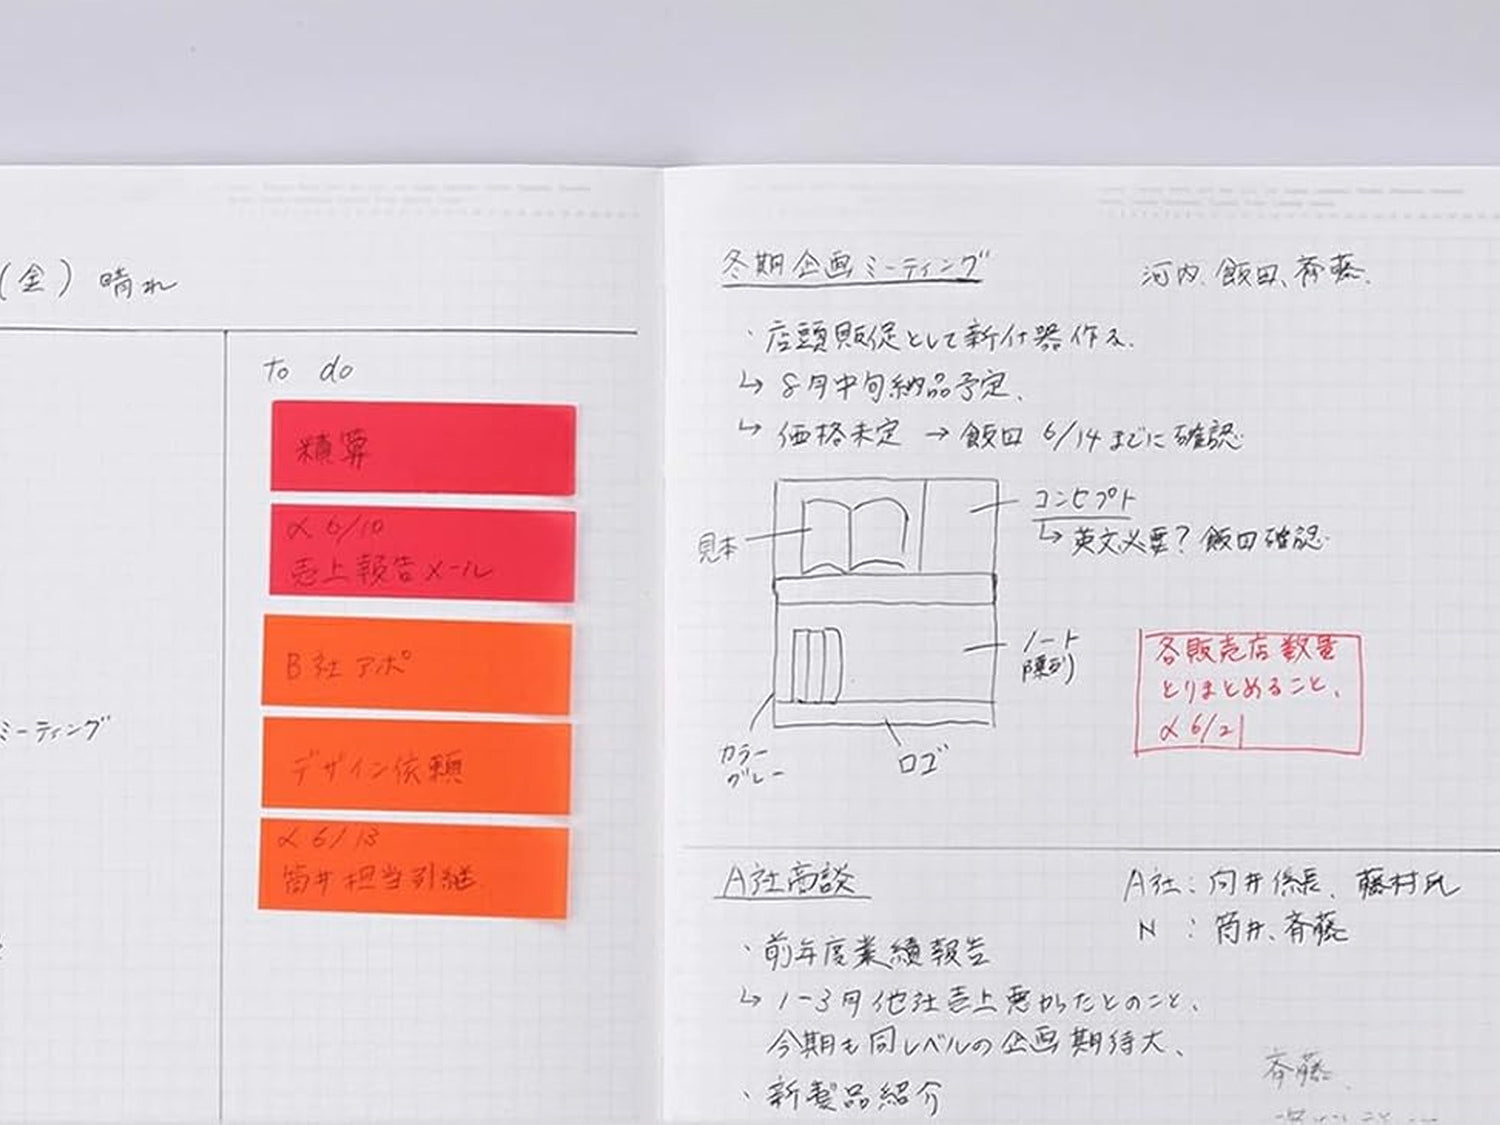 (金) 晴れ
to do
積算
〆6/10
売上報告メール
B社アポ
デザイン依頼
〆6/13
筒井担当引継
ミーティング
冬期企画ミーティング
河内、飯田、斉藤、
・店頭販促として新什器作る、
↳ 8月中旬納品予定、
↳ 価格未定 → 飯田 6/14までに確認
見本
コンセプト
↳ 英文必要? 飯田確認
ノート
陳列
カラー
グレー
ロゴ
各販売店数量
とりまとめること、
〆6/21
A社商談
A社: 向井係長、藤村氏
N : 筒井、斉藤
・前年度業績報告
↳ 1-3月他社売上悪かったとのこと、
今期も同レベルの企画期待大、
・新製品紹介
斉藤、